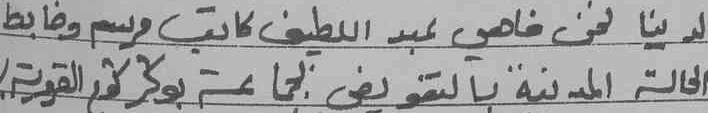 لدينا نحن فاهمي عبد اللطيف كاتب مرسم وضابط
الحالة المدنية بالتفويض لجماعة بوكركوح القروية/